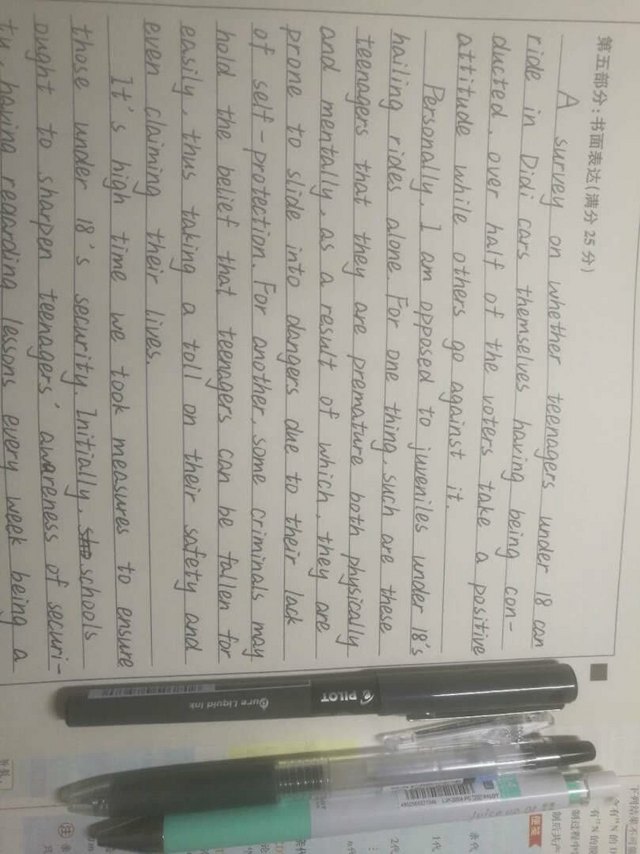 第五部分:书面表达(满分 25 分)
A survey on whether teenagers under 18 can
ride in Didi cars themselves having being con-
ducted, over half of the voters take a positive
attitude while others go against it.
Personally, I am opposed to juveniles under 18's
hailing rides alone. For one thing, such are these
teenagers that they are premature both physically
and mentally, as a result of which, they are
prone to slide into dangers due to their lack
of self-protection. For another, some criminals may
hold the belief that teenagers can be fallen for
easily, thus taking a toll on their safety and
even claiming their lives.
It's high time we took measures to ensure
those under 18's security. Initially, schools
ought to sharpen teenagers' awareness of securi-
ty, having regarding lessons every week being a
PILOT
Pure Liquid Ink